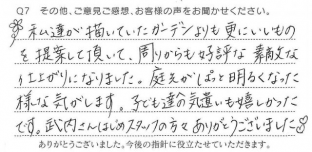 Q7 その他、ご意見ご感想、お客様の声をお聞かせください。
私達が描いていたガーデンよりも更にいいもの
を提案して頂いて、周りからも好評な素敵な
仕上がりになりました。庭先がぱっと明るくなった
様な気がします。子ども達への気遣いも嬉しかった
です。武内さんはじめスタッフの方々ありがとうございました
ありがとうございました。今後の指針に役立たせていただきます。